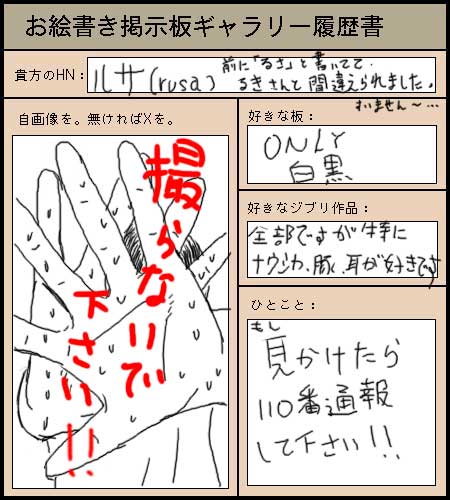 お絵書き掲示板ギャラリー履歴書
貴方のHN：
ルサ(rusa)
前に「るさ」と書いてて
るきさんと間違えられました。
すいません～…
自画像を。無ければXを。
撮らないで
下さい!!
好きな板：
ONLY
白黒
好きなジブリ作品：
全部ですが特に
ナウシカ、豚、耳が好きです
ひとこと：
もし
見かけたら
110番通報
して下さい!!